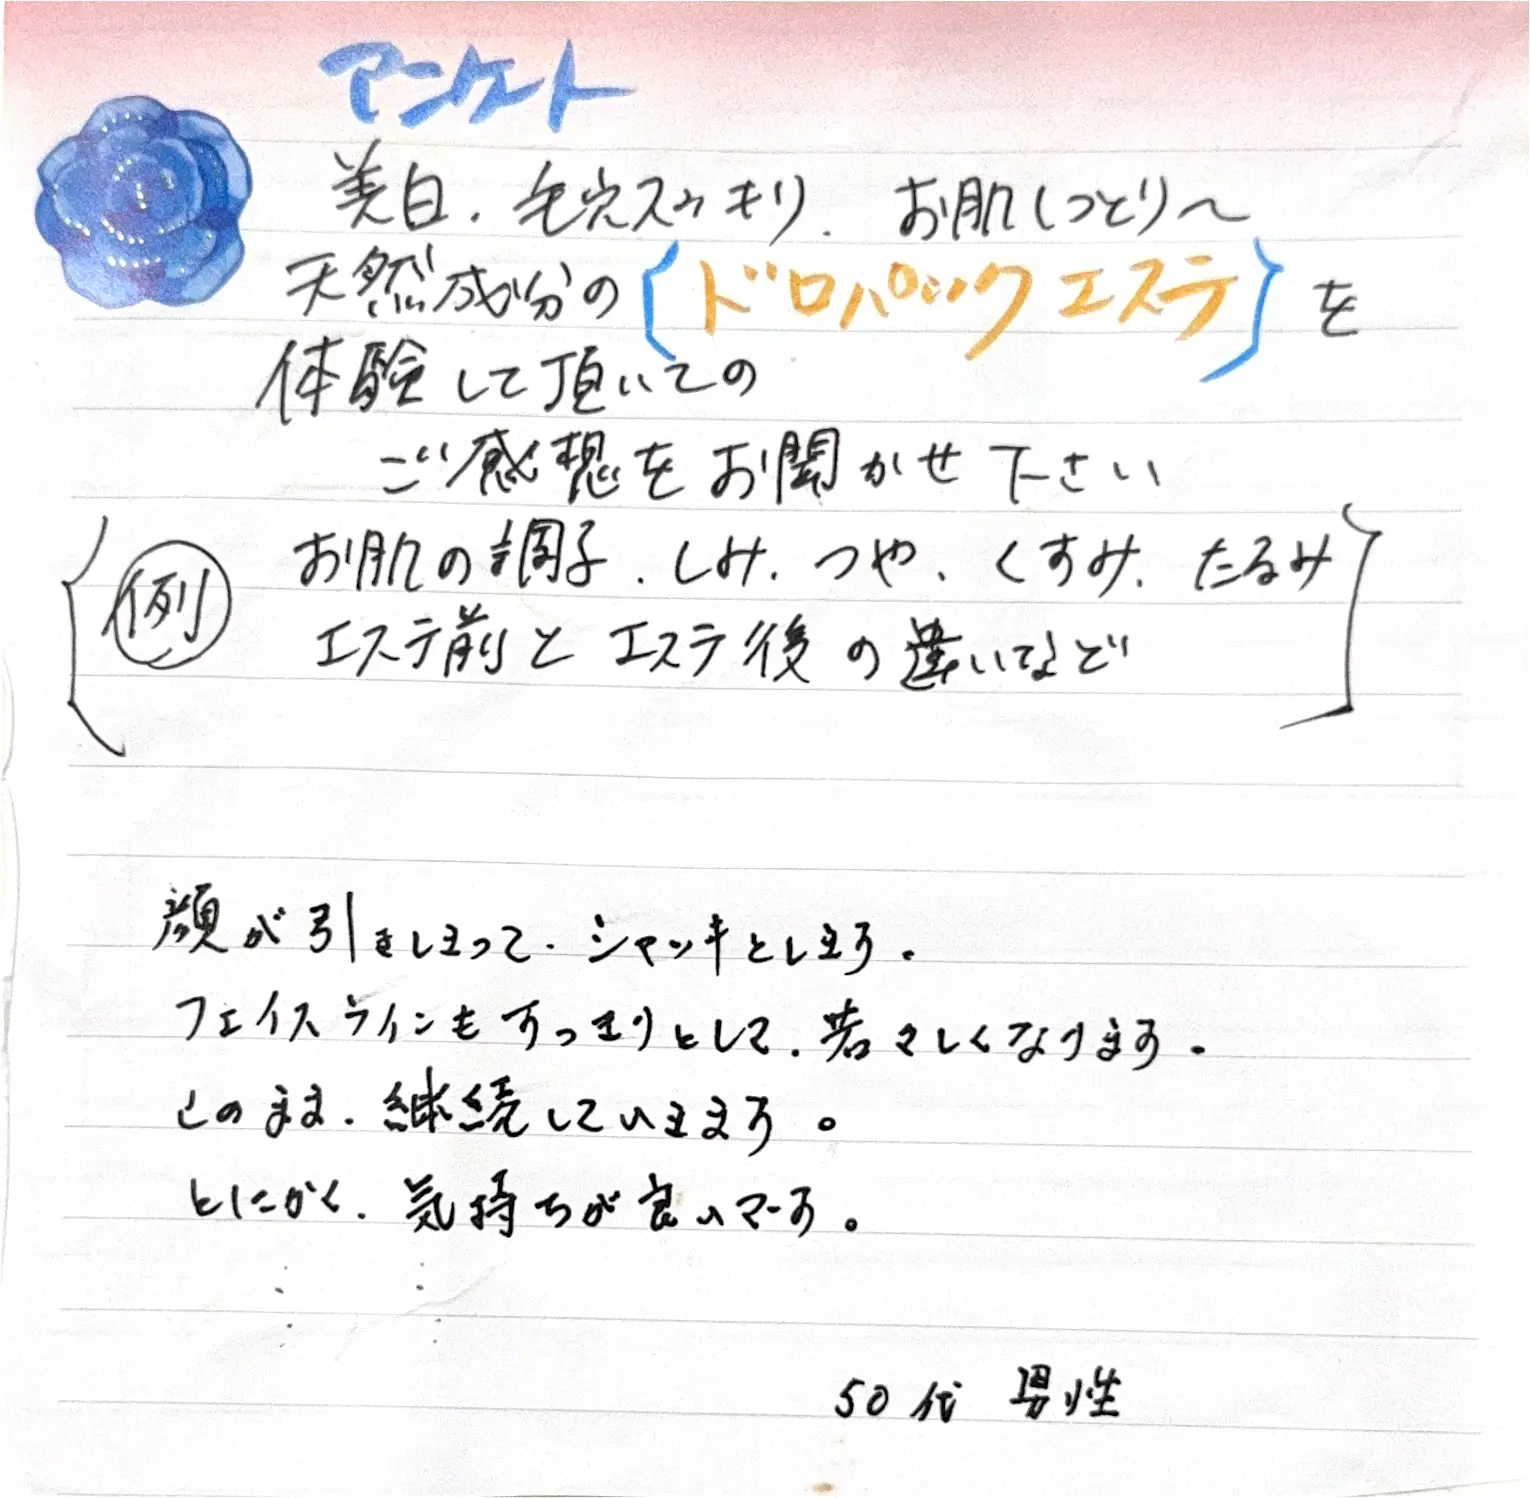 アンケート
美白、毛穴スッキリ、お肌しっとり〜
天然成分の{ドロパックエステ}を
体験して頂いての
ご感想をお聞かせ下さい
例 お肌の調子、しみ、つや、くすみ、たるみ
エステ前とエステ後の違いなど
顔が引きしまって、シャッキとします。
フェイスラインもすっきりとして、若々しくなります。
このまま、継続していきます。
とにかく、気持ちが良いでーす。
50代 男性